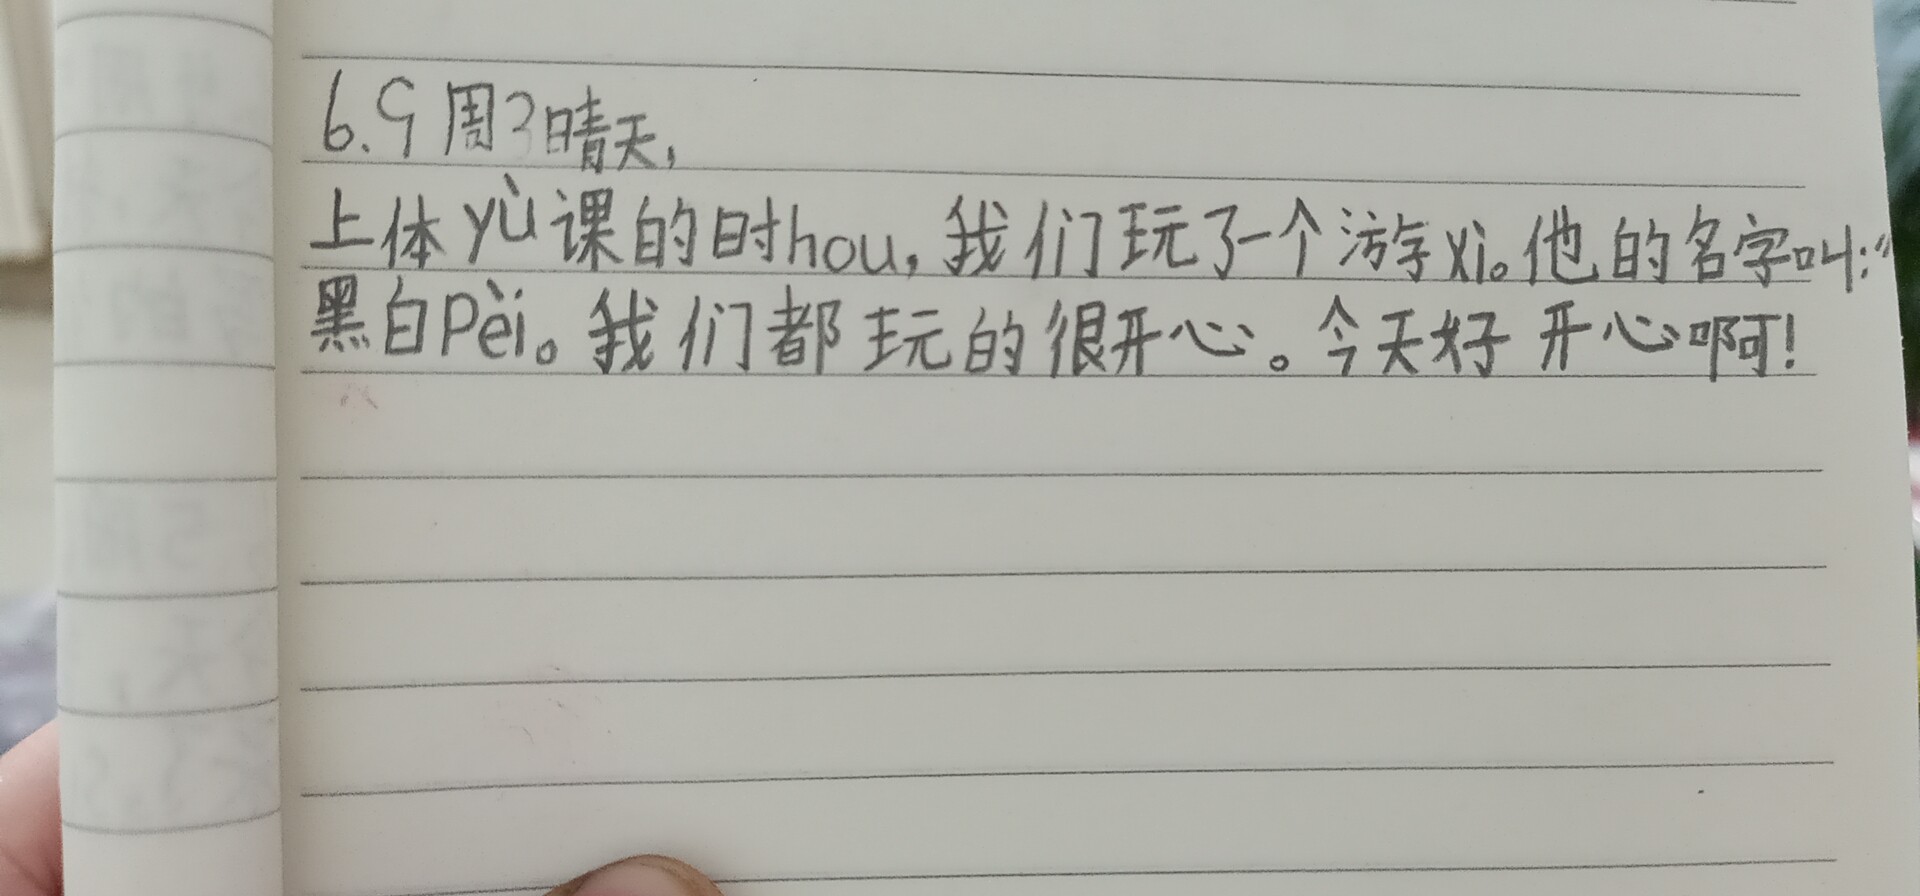 6.9周3晴天,
上体yù课的时hou,我们玩了一个游xi。他的名字叫:“
黑白Pèi。我们都玩的很开心。今天好开心啊!